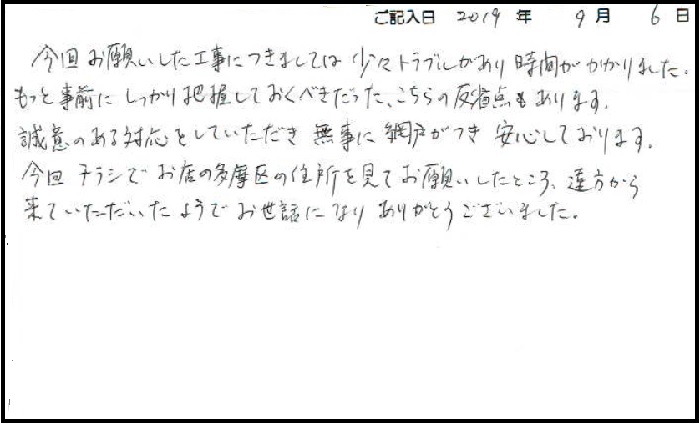 ご記入日 2019 年 9 月 6 日
今回お願いした工事につきましては 少々トラブルがあり 時間がかかりました.
もっと事前に しっかり把握しておくべきだった、こちらの反省点もあります.
誠意のある対応をしていただき 無事に網戸がつき 安心しております.
今回 チラシで お店の多摩区の住所を見てお願いしたところ、遠方から
来ていただいたようで お世話になり ありがとうございました。